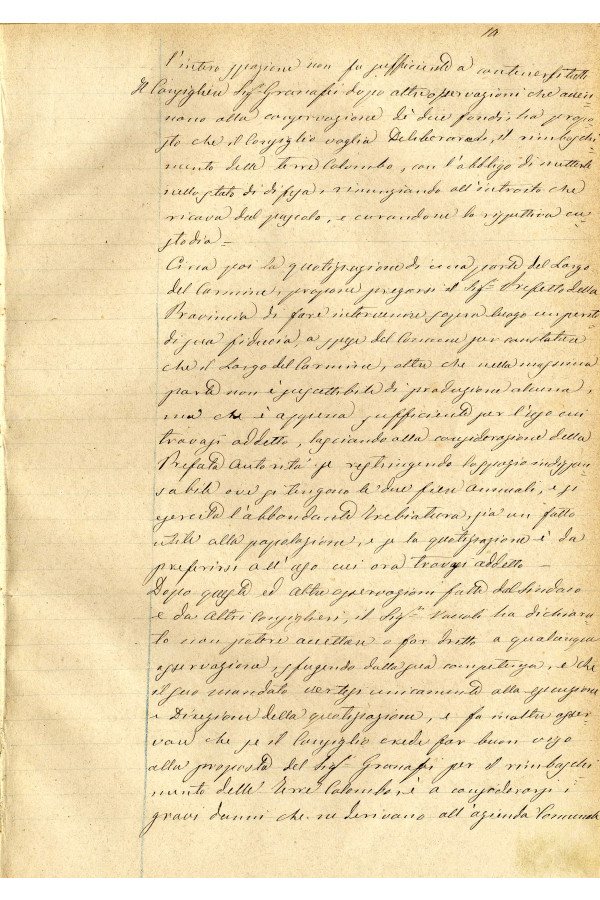 l'intero spazione non fu sufficiente a contenersi tutti
Il Consigliere Sigr Granafei dopo altre osservazioni che accen=
nano alla conservazione di due fondi, ha propo
sto che il Consiglio voglia Deliberare, il rimboschi
mento delle terre Colombo, con l'obbligo di metterle
nello stato di difesa, rinunziando all'introito che
ricava dal pascolo, e curandone la rispettiva cu
stodia =
Circa poi la quotizzazione di una parte del Largo
del Carmine, propone pregarsi il Sigr Prefetto della
Provincia di fare intervenire sopra luogo un perito
di sua fiducia, a spese del Comune per constatare
che il Largo del Carmine, oltre che nella massima
parte non è suscettibile di produzione alcuna,
ma che è appena sufficiente per l'uso cui
trovasi addetto, lasciando alla considerazione della
Prefata Autorità se restringendo lo spazio indispen
sabile ove si tengono le due fiere annuali, e si
esercita l'abbondante Trebiatura, sia un fatto
utile alla popolazione, e se la quotizzazione è da
preferirsi all'uso cui ora trovasi addetto —
Dopo queste ed altre osservazioni fatte dal Sindaco
e da altri Consiglieri, il Sigr ha dichiara
to non potere accettare o far dritto a qualunque
osservazione, sfugendo dalla sua competenza, e che
il suo mandato vertesi unicamente alla esecuzione
e Direzione della quotizzazione, e fa inoltre osser=
vare che se il Consiglio crede far buon viso
alla proposta del Sigr Granafei per il rimboschi
mento delle Terre Colombo è a considerarsi i
gravi danni che ne derivano all'azienda Comunale